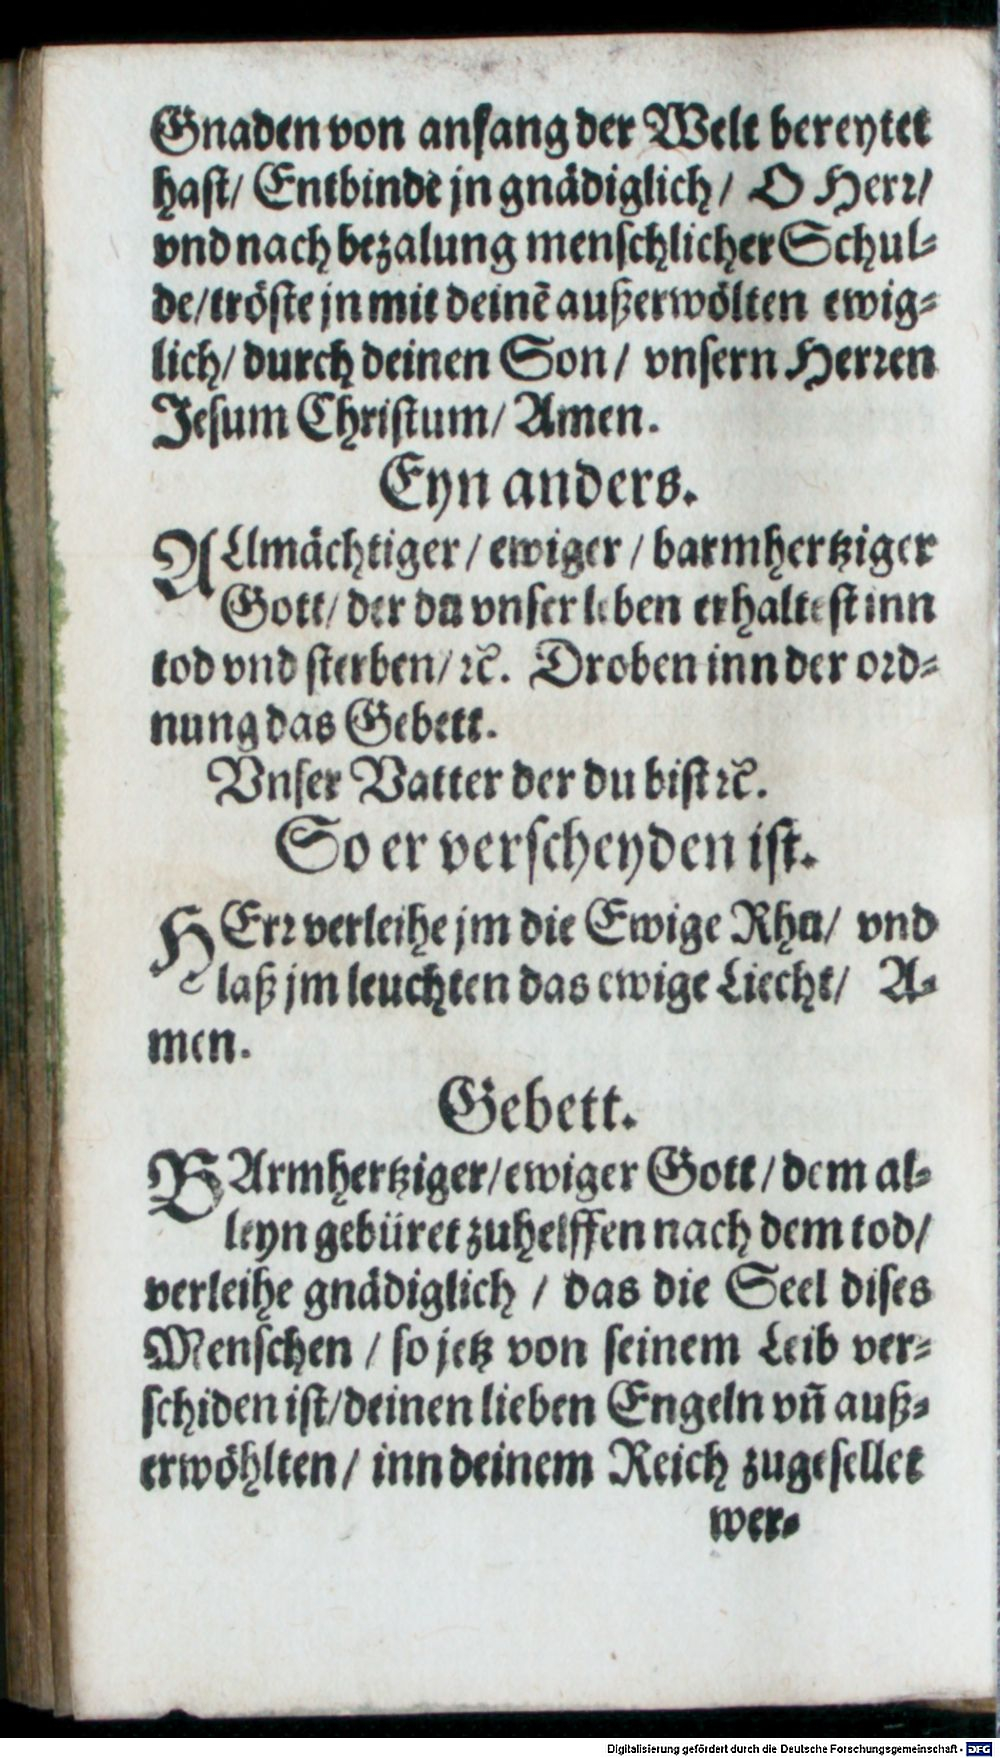 Gnaden von anfang der Welt bereytet
hast/ Entbinde jn gnädiglich/ O Herr/
vnd nach bezalung menschlicher Schul-
de/ tröste jn mit deinē außerwölten ewig-
lich/ durch deinen Son/ vnsern Herren
Jesum Christum/ Amen.
Eyn anders.
ALlmächtiger/ ewiger/ barmhertziger
Gott/ der du vnser leben erhaltest inn
tod vnd sterben/ ꝛc̄. Droben inn der ord-
nung das Gebett.
Vnser Vatter der du bist ꝛc̄.
So er verscheyden ist.
HErr verleihe jm die Ewige Rhu/ vnd
laß jm leuchten das ewige Liecht/ A-
men.
Gebett.
BArmhertziger/ ewiger Gott/ dem al-
leyn gebüret zuhelffen nach dem tod/
verleihe gnädiglich/ das die Seel dises
Menschen/ so jetz von seinem Leib ver-
schiden ist/ deinen lieben Engeln vñ auß-
erwöhlten/ inn deinem Reich zugesellet
wer-
Digitalisierung gefördert durch die Deutsche Forschungsgemeinschaft - DFG